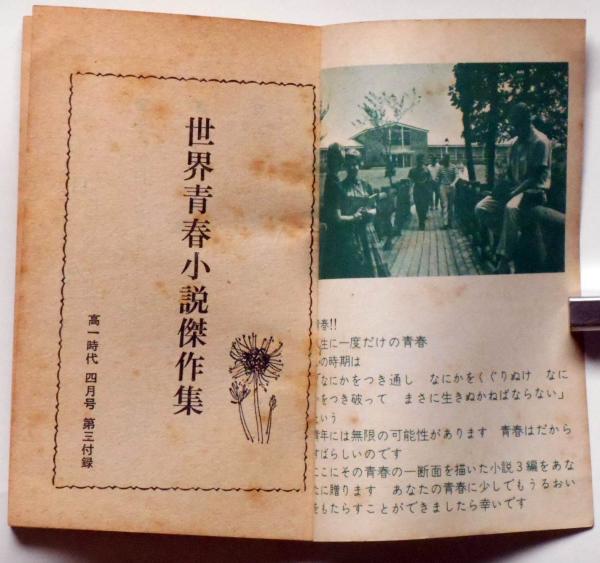 世界青春小説傑作集
高一時代 四月号 第三付録
青春!!
人生に一度だけの青春
の時期は
「なにかをつき通し なにかをくぐりぬけ なに
かをつき破って まさに生きぬかねばならない」
という
青年には無限の可能性があります 青春はだから
すばらしいのです
ここにその青春の一断面を描いた小説3編をあな
たに贈ります あなたの青春に少しでもうるおい
をもたらすことができましたら幸いです